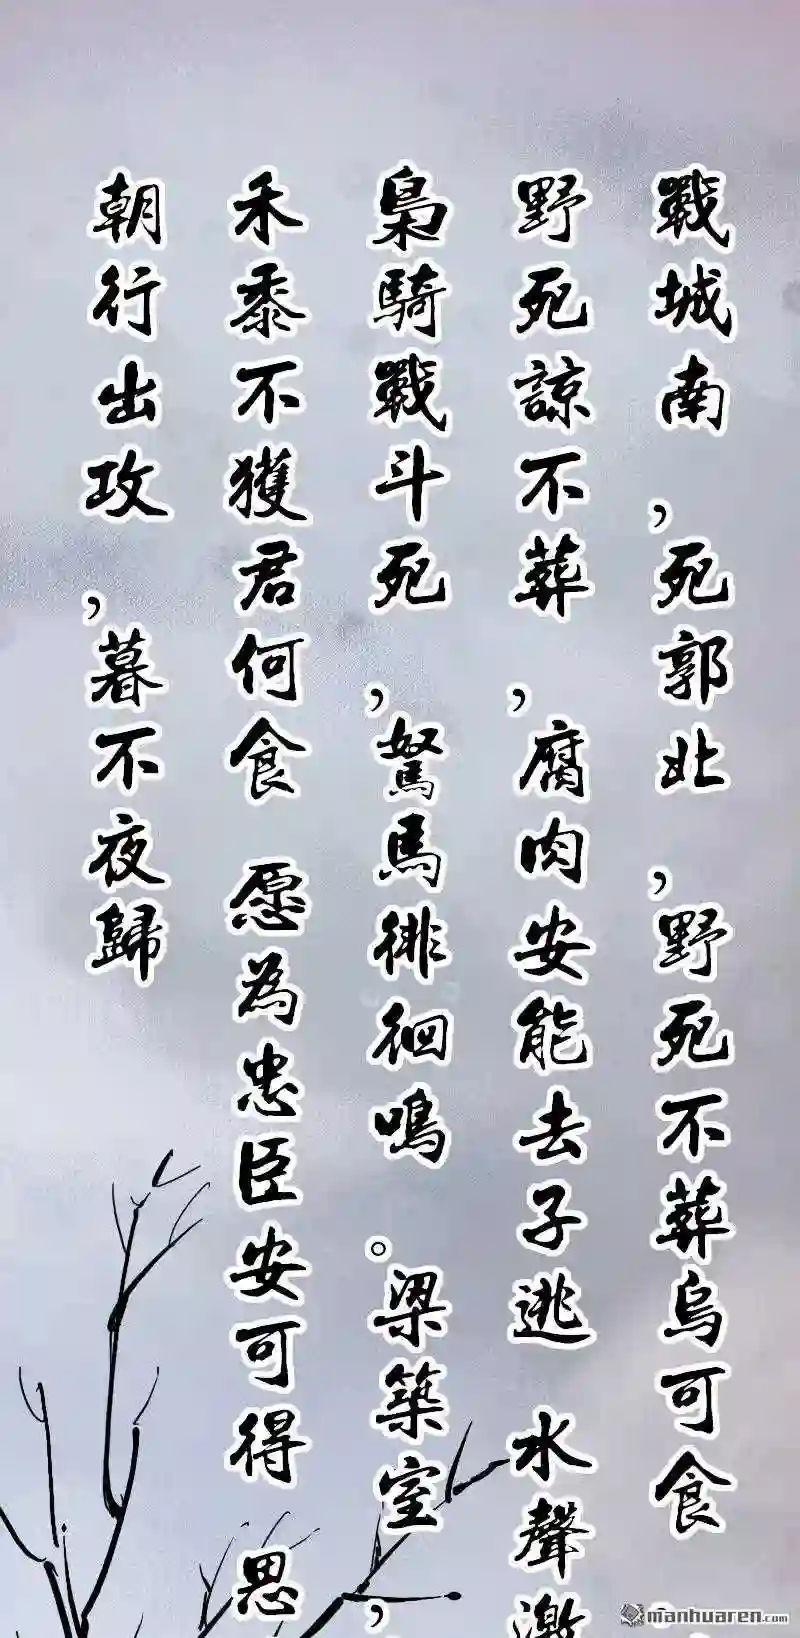 戰城南，死郭北，野死不葬烏可食
野死諒不葬，腐肉安能去子逃 水聲激
梟騎戰斗死，駑馬徘徊鳴。梁築室，
禾黍不獲君何食 愿為忠臣安可得 思
朝行出攻，暮不夜歸
manhuaren.com